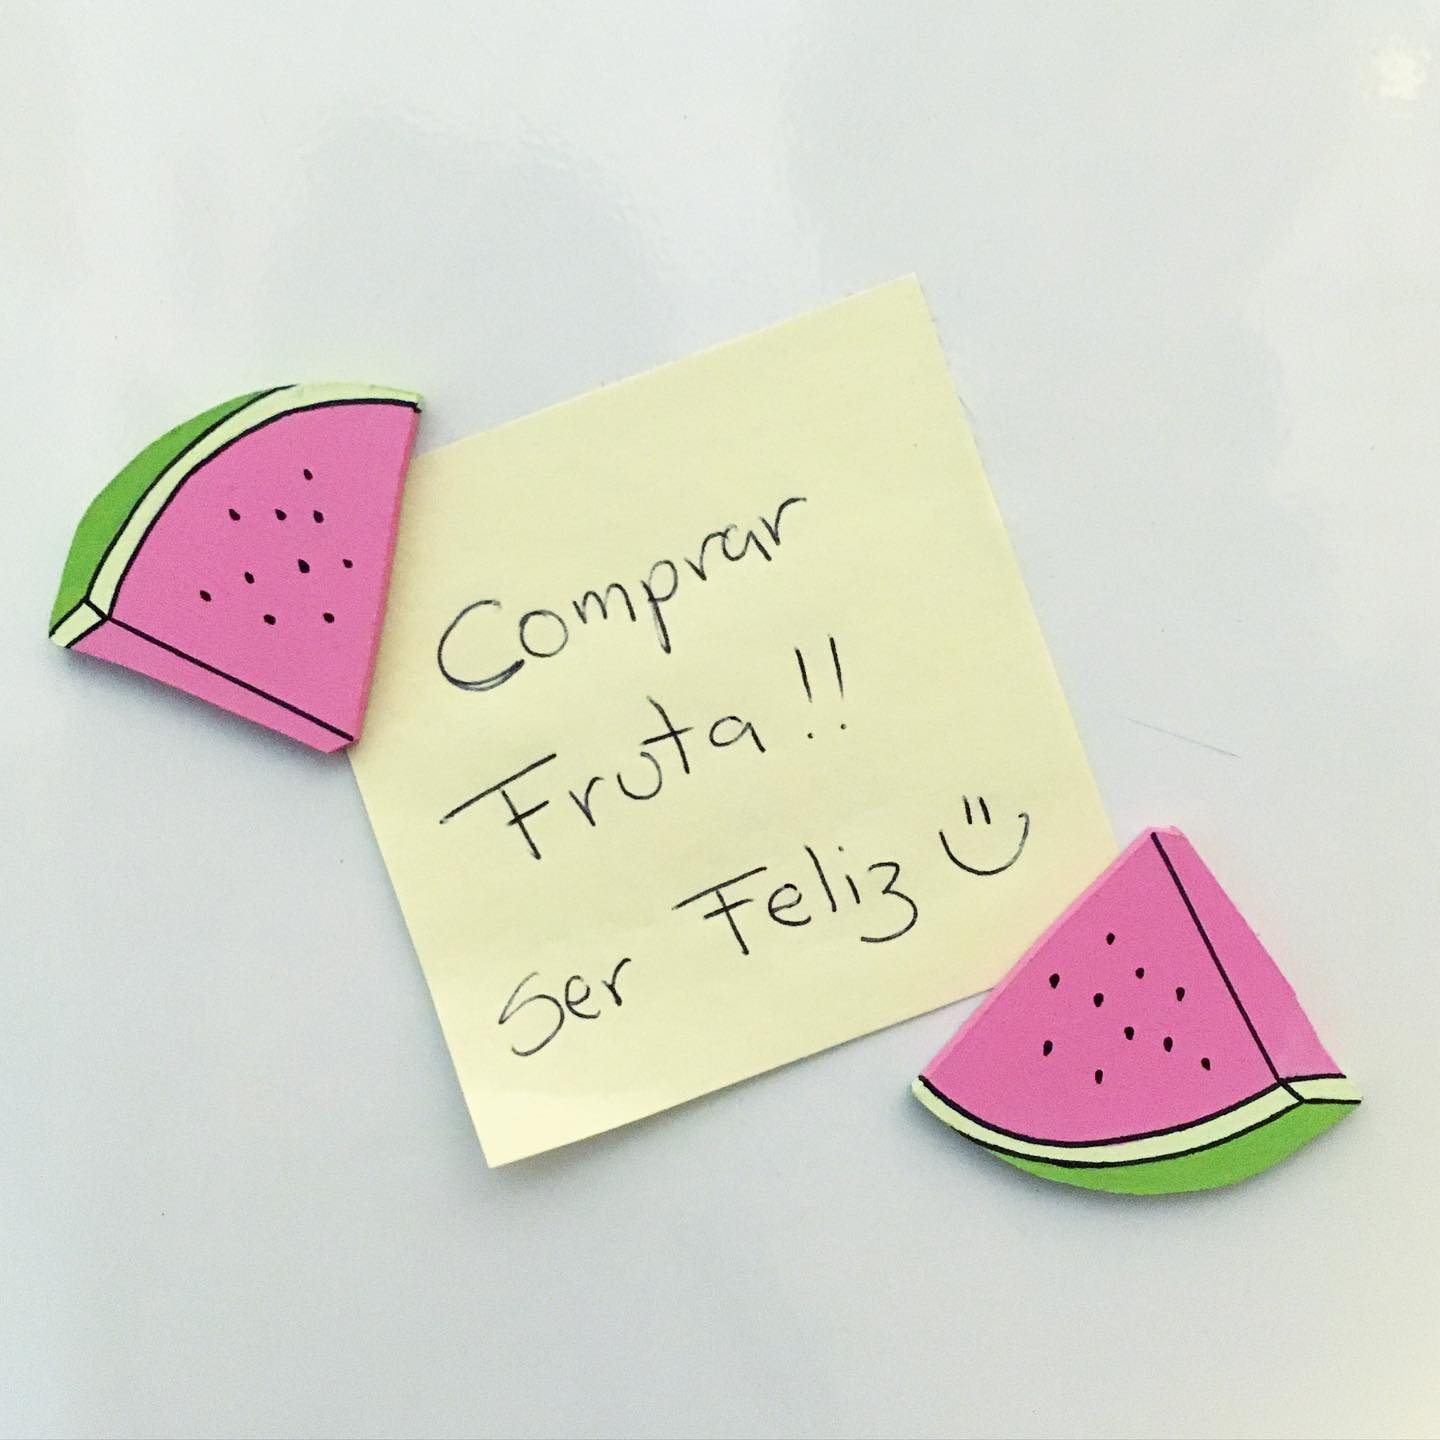 Comprar
Fruta!!
ser Feliz